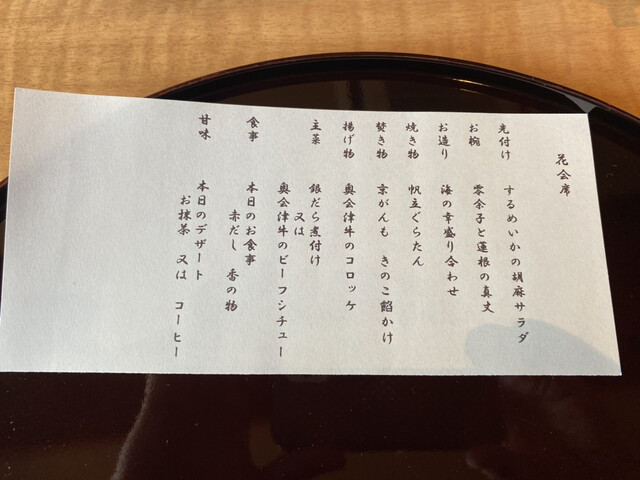 花会席
先付け するめいかの胡麻サラダ
お椀 零余子と蓮根の真丈
お造り 海の幸盛り合わせ
焼き物 帆立ぐらたん
焚き物 京がんも きのこ餡かけ
揚げ物 奥会津牛のコロッケ
主菜 銀だら煮付け
又は
奥会津牛のビーフシチュー
食事 本日のお食事
赤だし 香の物
甘味 本日のデザート
お抹茶 又は コーヒー